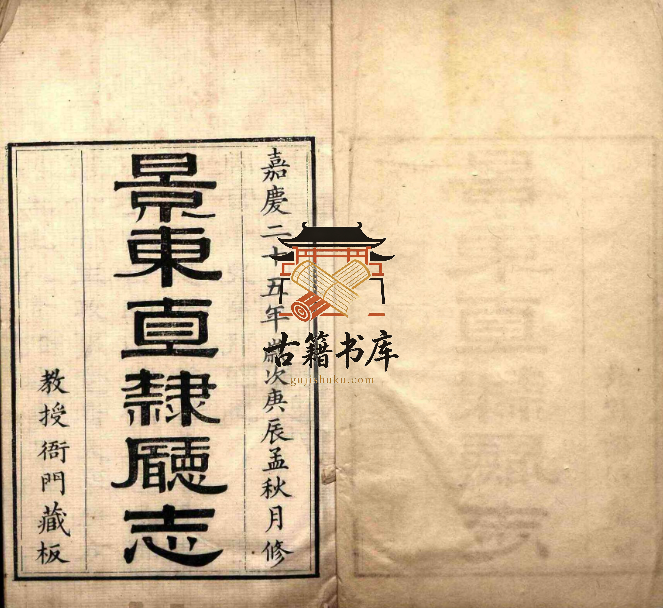 嘉慶二十五年歲次庚辰孟秋月修
景東直隸廳志
教授衙門藏板
古籍书库
gujishuku.com